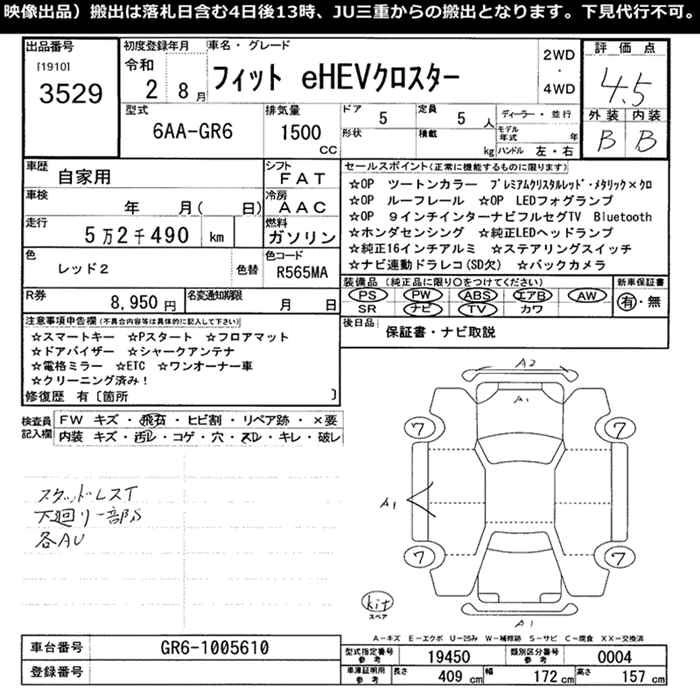 映像出品）搬出は落札日含む4日後13時、JU三重からの搬出となります。下見代行不可。
出品番号
[1910]
3529
初度登録年月
令和
2 8月
車名・グレード
フィット eHEVクロスター
2WD
・
4WD
評価点
4.5
外装 内装
B B
型式
6AA-GR6
排気量
1500
CC
ドア
5
形状
定員
5 人
積載
kg
ディーラー・並行
モデル年式 年
ハンドル 左・右
車歴
自家用
シフト
FAT
車検
年 月( 日)
冷房
AAC
走行
5万2千490 km
燃料
ガソリン
色
レッド2
色替
色コード
R565MA
R券
8,950円
名変通知期限
月 日
セールスポイント(正常に機能するものに限ります)
☆OP ツートンカラー プレミアムクリスタルレッド・メタリック×クロ
☆OP ルーフレール ☆OP LEDフォグランプ
☆OP 9インチインターナビフルセグTV Bluetooth
☆ホンダセンシング ☆純正LEDヘッドランプ
☆純正16インチアルミ ☆ステアリングスイッチ
☆ナビ連動ドラレコ(SD欠) ☆バックカメラ
装備品(純正品に限り○をつけてください)
PS PW ABS エアB AW
SR ナビ TV カワ
新車保証書
有・無
後日品
保証書・ナビ取説
注意事項申告欄(不具合内容等は具体的に記入して下さい)
☆スマートキー ☆Pスタート ☆フロアマット
☆ドアバイザー ☆シャークアンテナ
☆電格ミラー ☆ETC ☆ワンオーナー車
☆クリーニング済み！
修復歴 有〔箇所 〕
検査員記入欄
FW キズ・飛石・ヒビ割・リペア跡・×要
内装 キズ・汚レ・コゲ・穴・スレ・キレ・破レ
スタッドレスT
下廻り一部S
各AU
A2
A1
7 7
A1
7 7
kit
スペア
A1
A－キズ E－エクボ U－凹み W－補修跡 S－サビ C－腐食 XX－交換済
車台番号
GR6-1005610
登録番号
型式指定番号参考
19450
類別区分番号参考
0004
車庫証明用参考
長さ 409 cm 幅 172 cm 高さ 157 cm